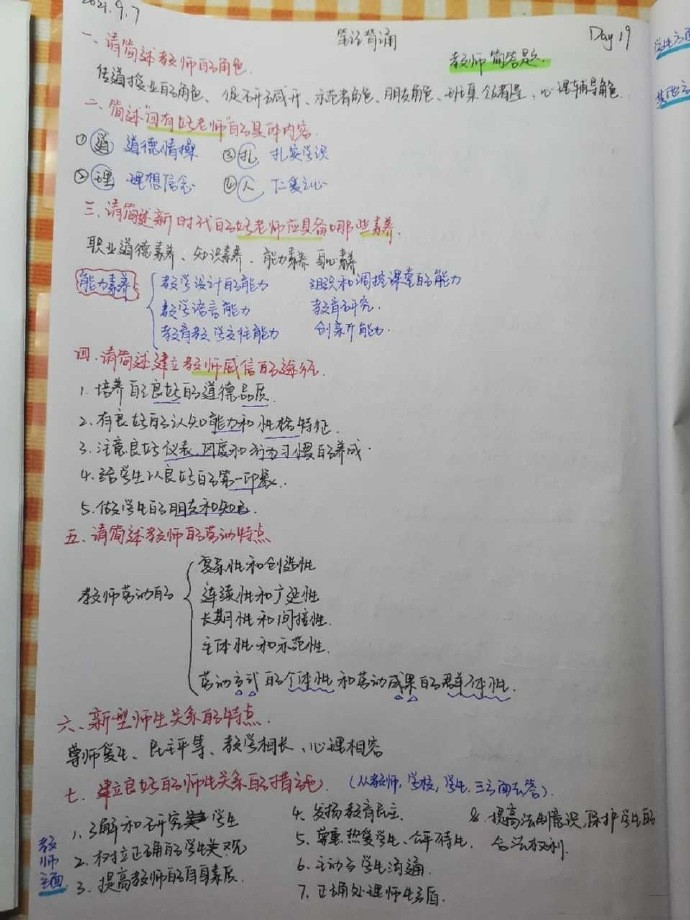 2021.9.7
笔记背诵
Day 19
教师简答题
一、请简述教师的角色
传道授业的角色、促 示范者角色、朋友角色、班集 领 心理辅导角色
二、简述"四有好老师"的具体内容
①道 道德情操 ③扎 扎实学识
②理 理想信念 ④人 仁爱之心
三、请简述新时代的好老师应具备哪些素养
职业道德素养、知识素养、能力素养
能力素养
教学设计的能力 组织和调控课堂的能力
教学语言能力 教育研究
教育教学交往能力 创新能力
四、请简述建立教师威信的途径
1. 培养自己良好的道德品质
2. 有良好的认知能力和性格特征
3. 注意良好仪表、风度和行为习惯的养成
4. 给学生以良好的第一印象
5. 做学生的朋友和知己
五、请简述教师的劳动特点
教师劳动的
复杂性和创造性
连续性和广延性
长期性和间接性
主体性和示范性
劳动方式的个体性和劳动成果的群体性
六、新型师生关系的特点
尊师爱生、民主平等、教学相长、心理相容
七、建立良好的师生关系的措施 (从教师,学校,学生,三方面去答)
教师方面
1. 了解和研究学生
2. 树立正确的学生观
3. 提高教师的自身素质
4. 发扬教育民主
5. 尊重热爱学生、公平待生
6. 主动与学生沟通
7. 正确处理师生矛盾
8. 提高法制意识,保护学生的
合法权利